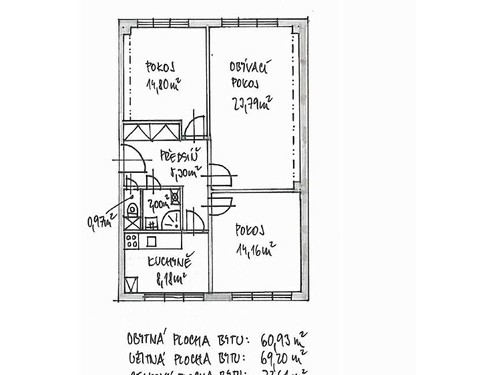 POKOJ
14,80m²
OBÝVACÍ
POKOJ
23,79m²
PŘEDSÍŇ
8,20m²
2,00m²
0,97m²
POKOJ
14,16m²
KUCHYNĚ
8,18m²
OBYTNÁ PLOCHA BYTU: 60,93 m²
UŽITNÁ PLOCHA BYTU: 69,20 m²
PLOCHA BYTU: